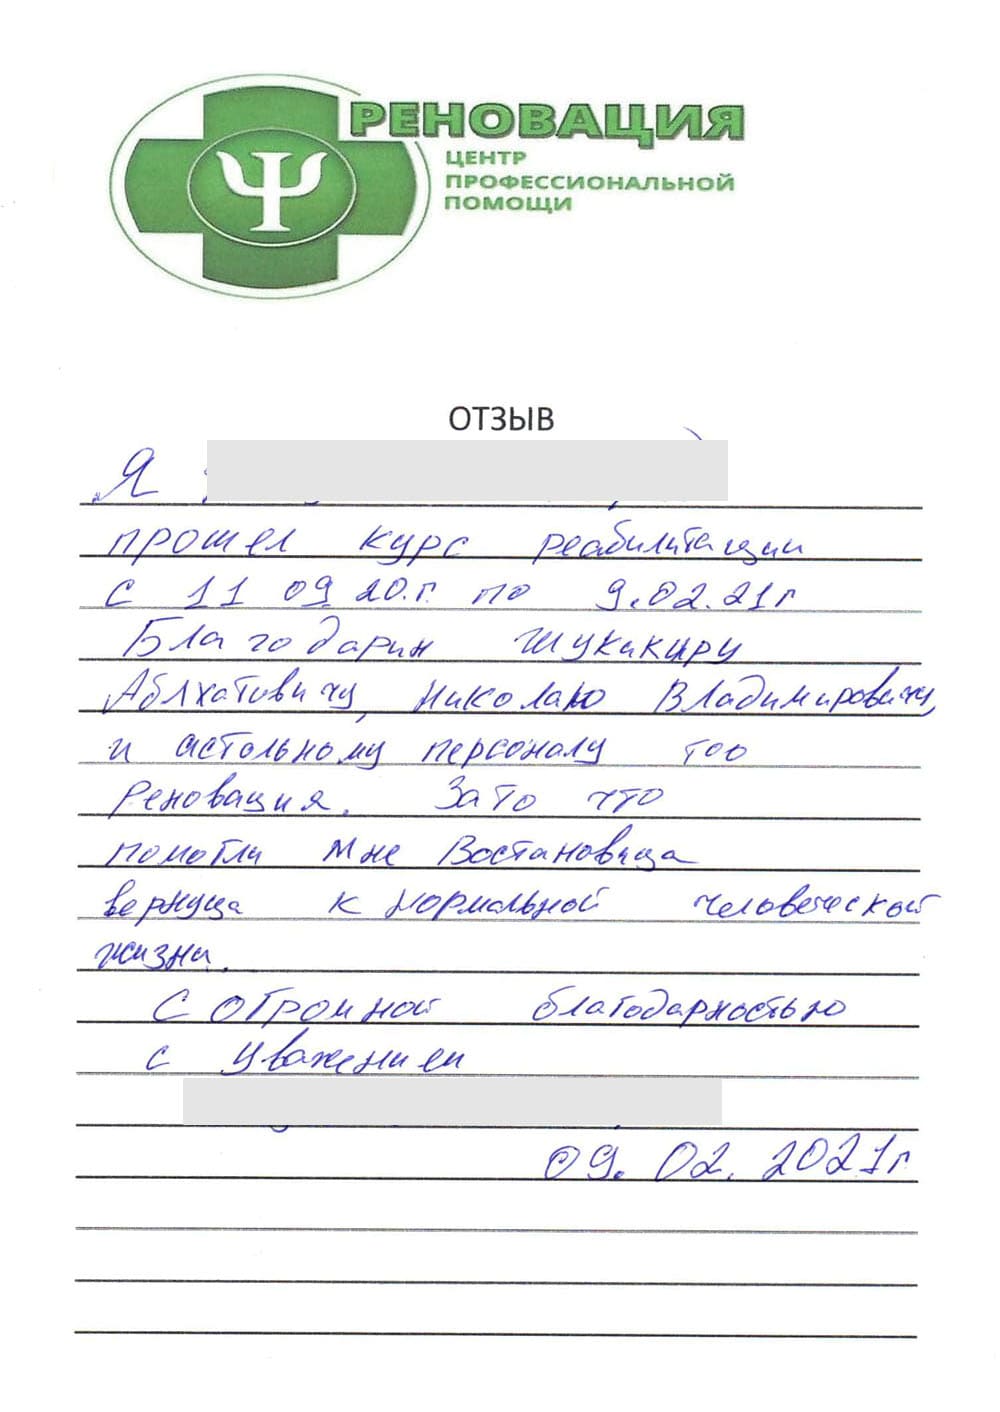 РЕНОВАЦИЯ
ЦЕНТР
ПРОФЕССИОНАЛЬНОЙ
ПОМОЩИ
ОТЗЫВ
Я
прошел курс реабилитации
с 11 09 20.г. по 9.02.21г
Благодарин
Николаю Владимировичу,
и персоналу тоо
Реновация. Зато что
помогли мне Востановица
вернуца к нормальной человеческой
жизни.
С огромной благодарностью
с уважением
09.02.2021г.